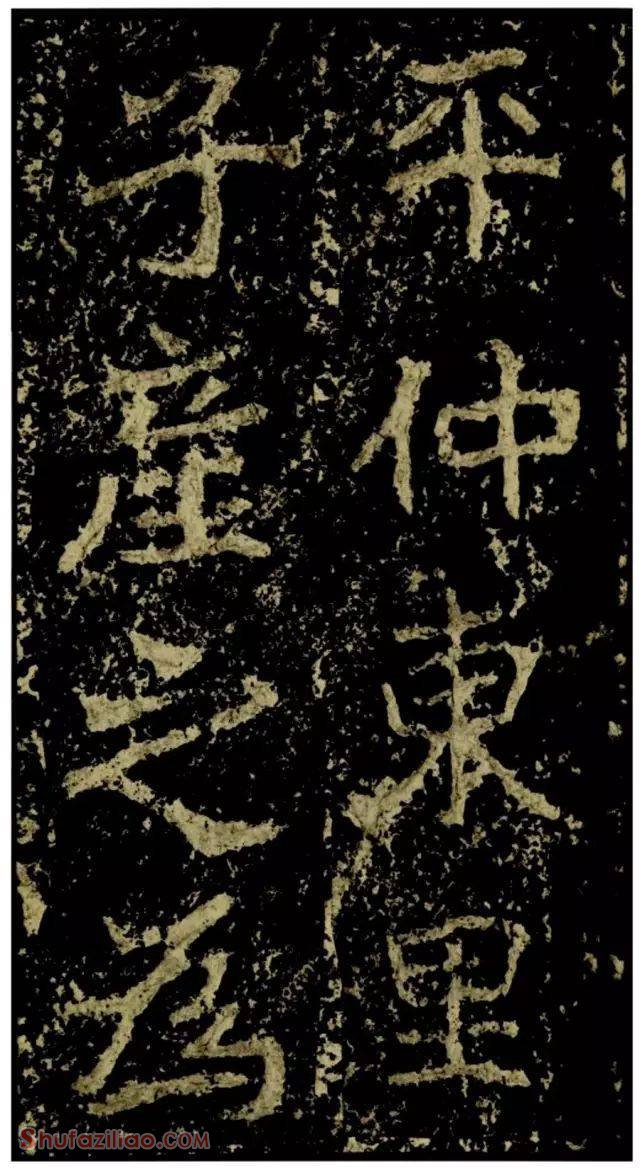 平仲東里
子產之為
Shufaziliao.COM